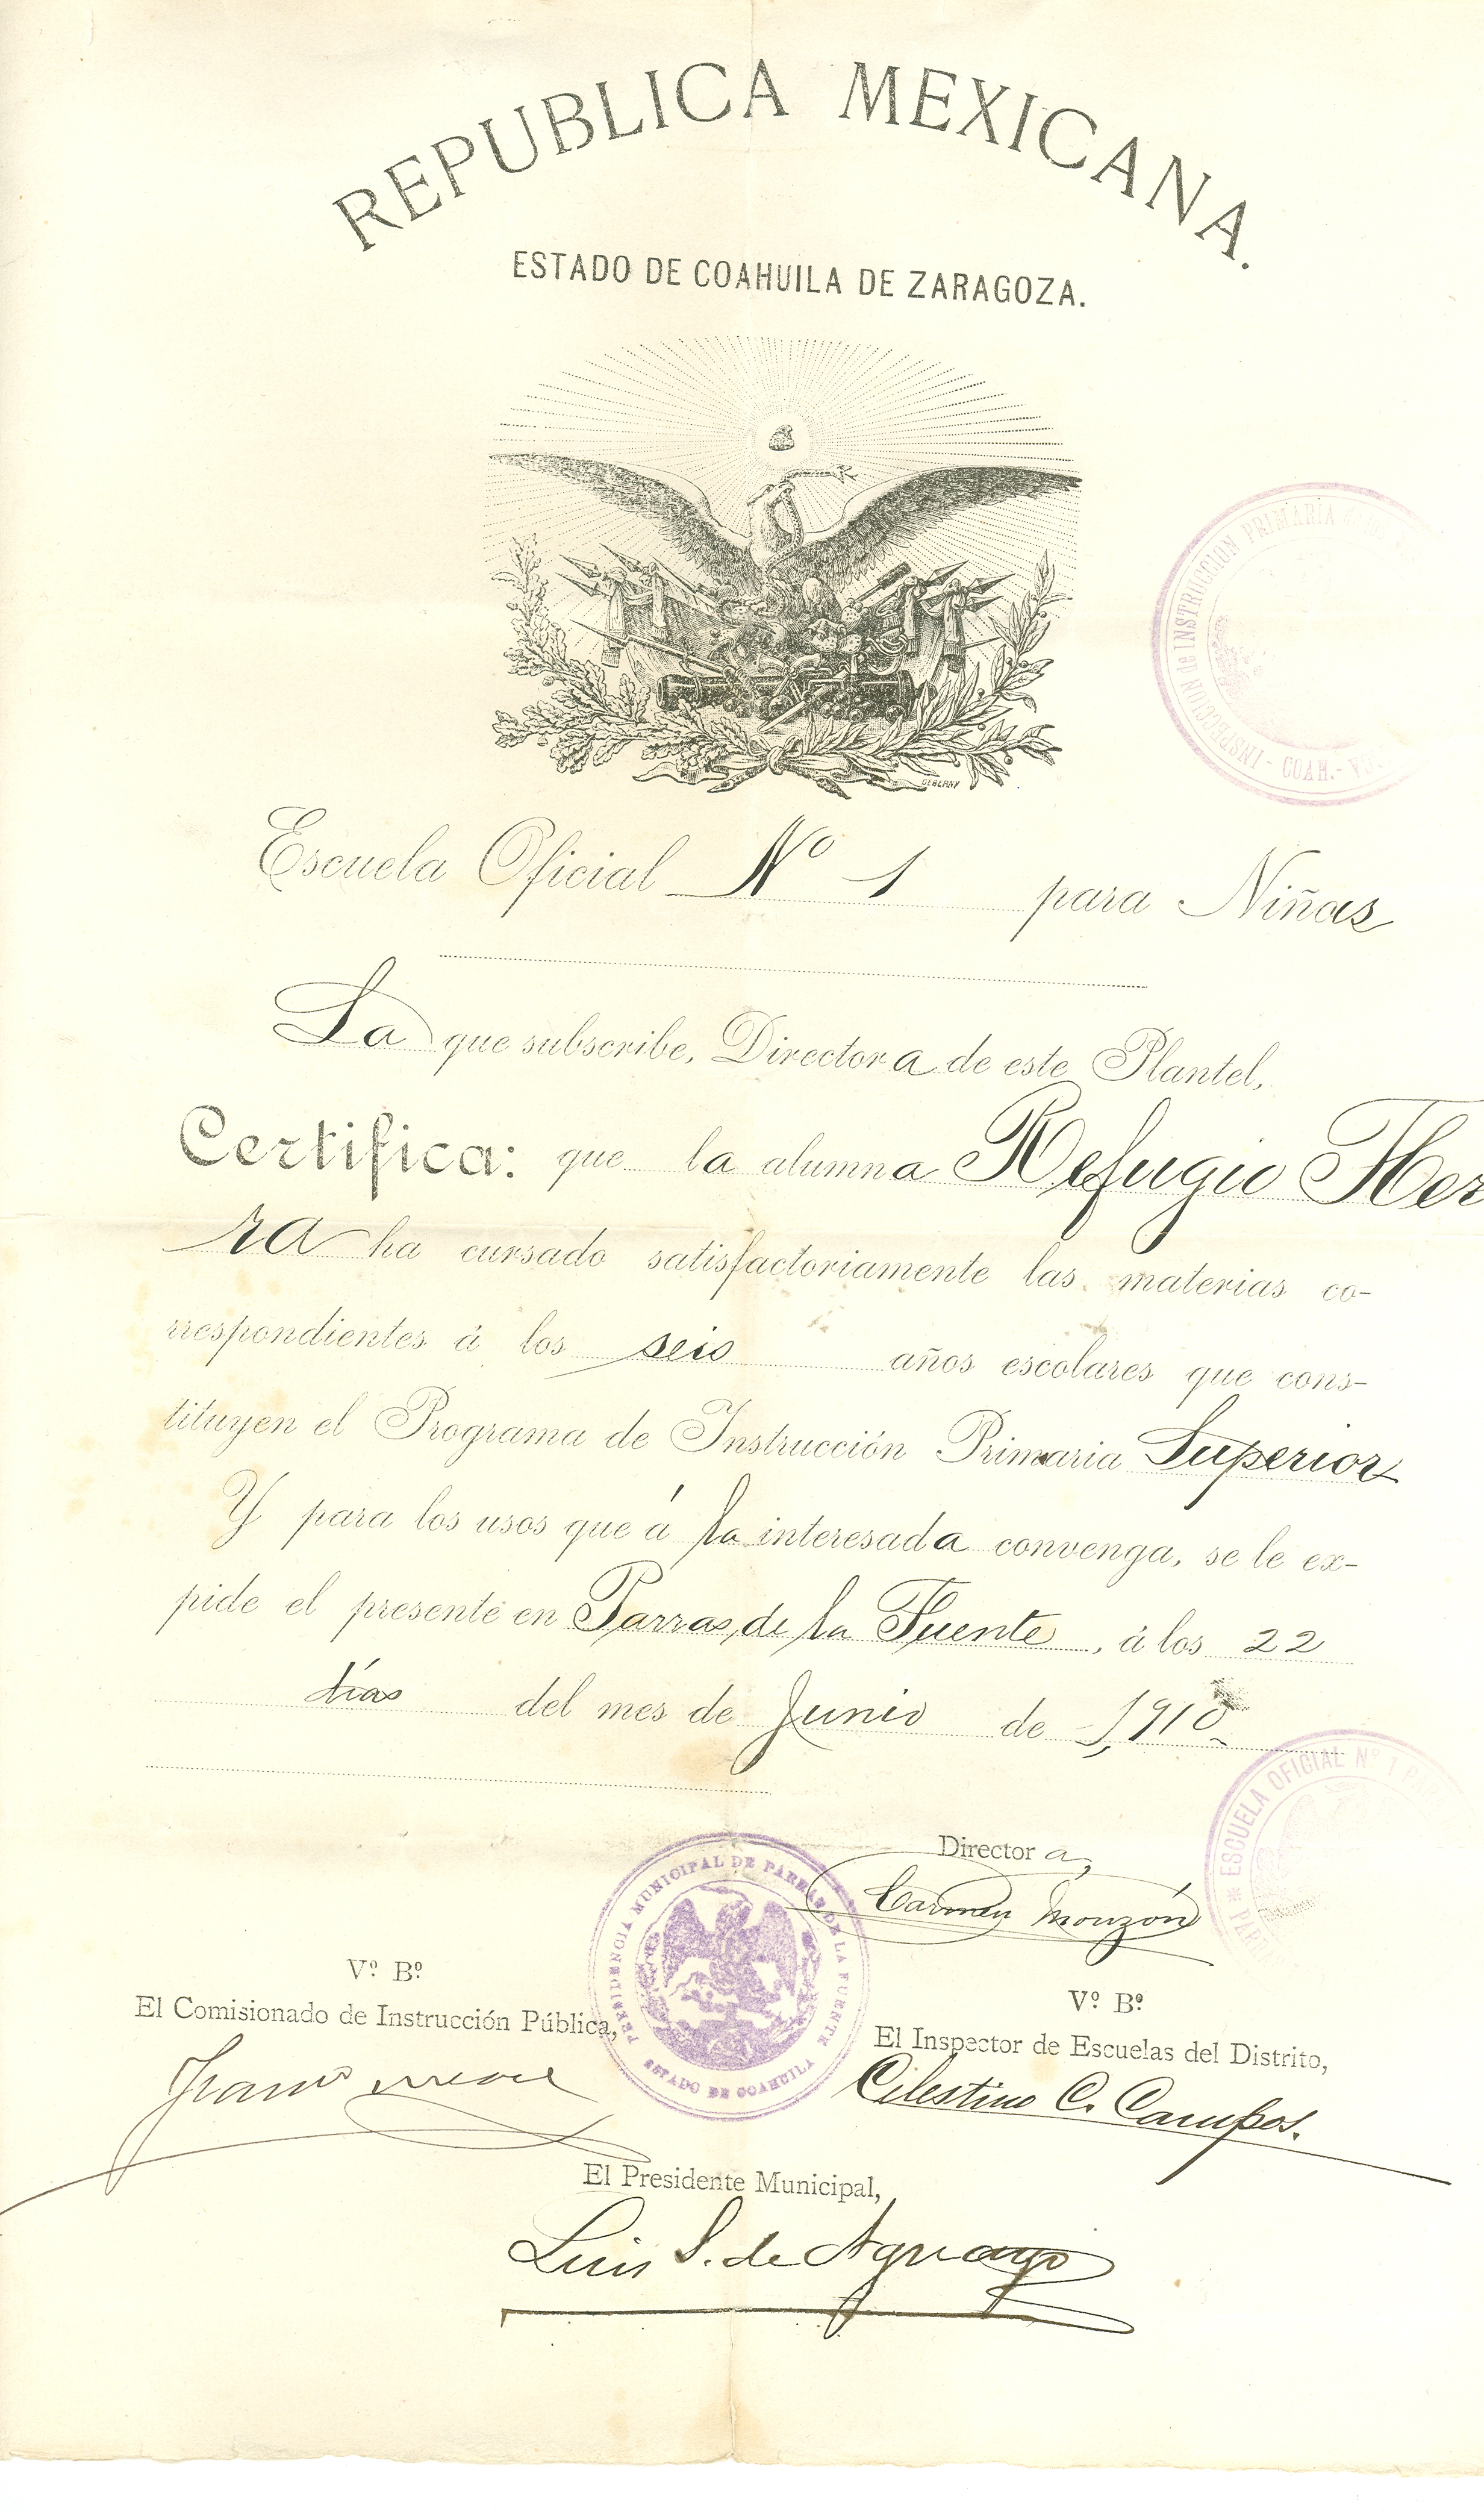 REPUBLICA MEXICANA.
ESTADO DE COAHUILA DE ZARAGOZA.
INSPECCION de INSTRUCCION PRIMARIA
- COAH.-
Escuela Oficial Nº 1 para Niñas
La que subscribe, Directora de este Plantel,
Certifica: que la alumna Refugio Her
ra ha cursado satisfactoriamente las materias co-
rrespondientes á los seis años escolares que cons-
tituyen el Programa de Instrucción Primaria Superior
Y para los usos que á la interesada convenga, se le ex-
pide el presente en Parras de la Fuente, á los 22
días del mes de Junio de 1,910
ESCUELA OFICIAL Nº 1
Directora,
Carmen Monzón
PRESIDENCIA MUNICIPAL DE PARRAS DE LA FUENTE
ESTADO DE COAHUILA
Vº Bº
El Comisionado de Instrucción Pública,
Vº Bº
El Inspector de Escuelas del Distrito,
Celestino C. Campos.
El Presidente Municipal,
Luis S. de Aguayo